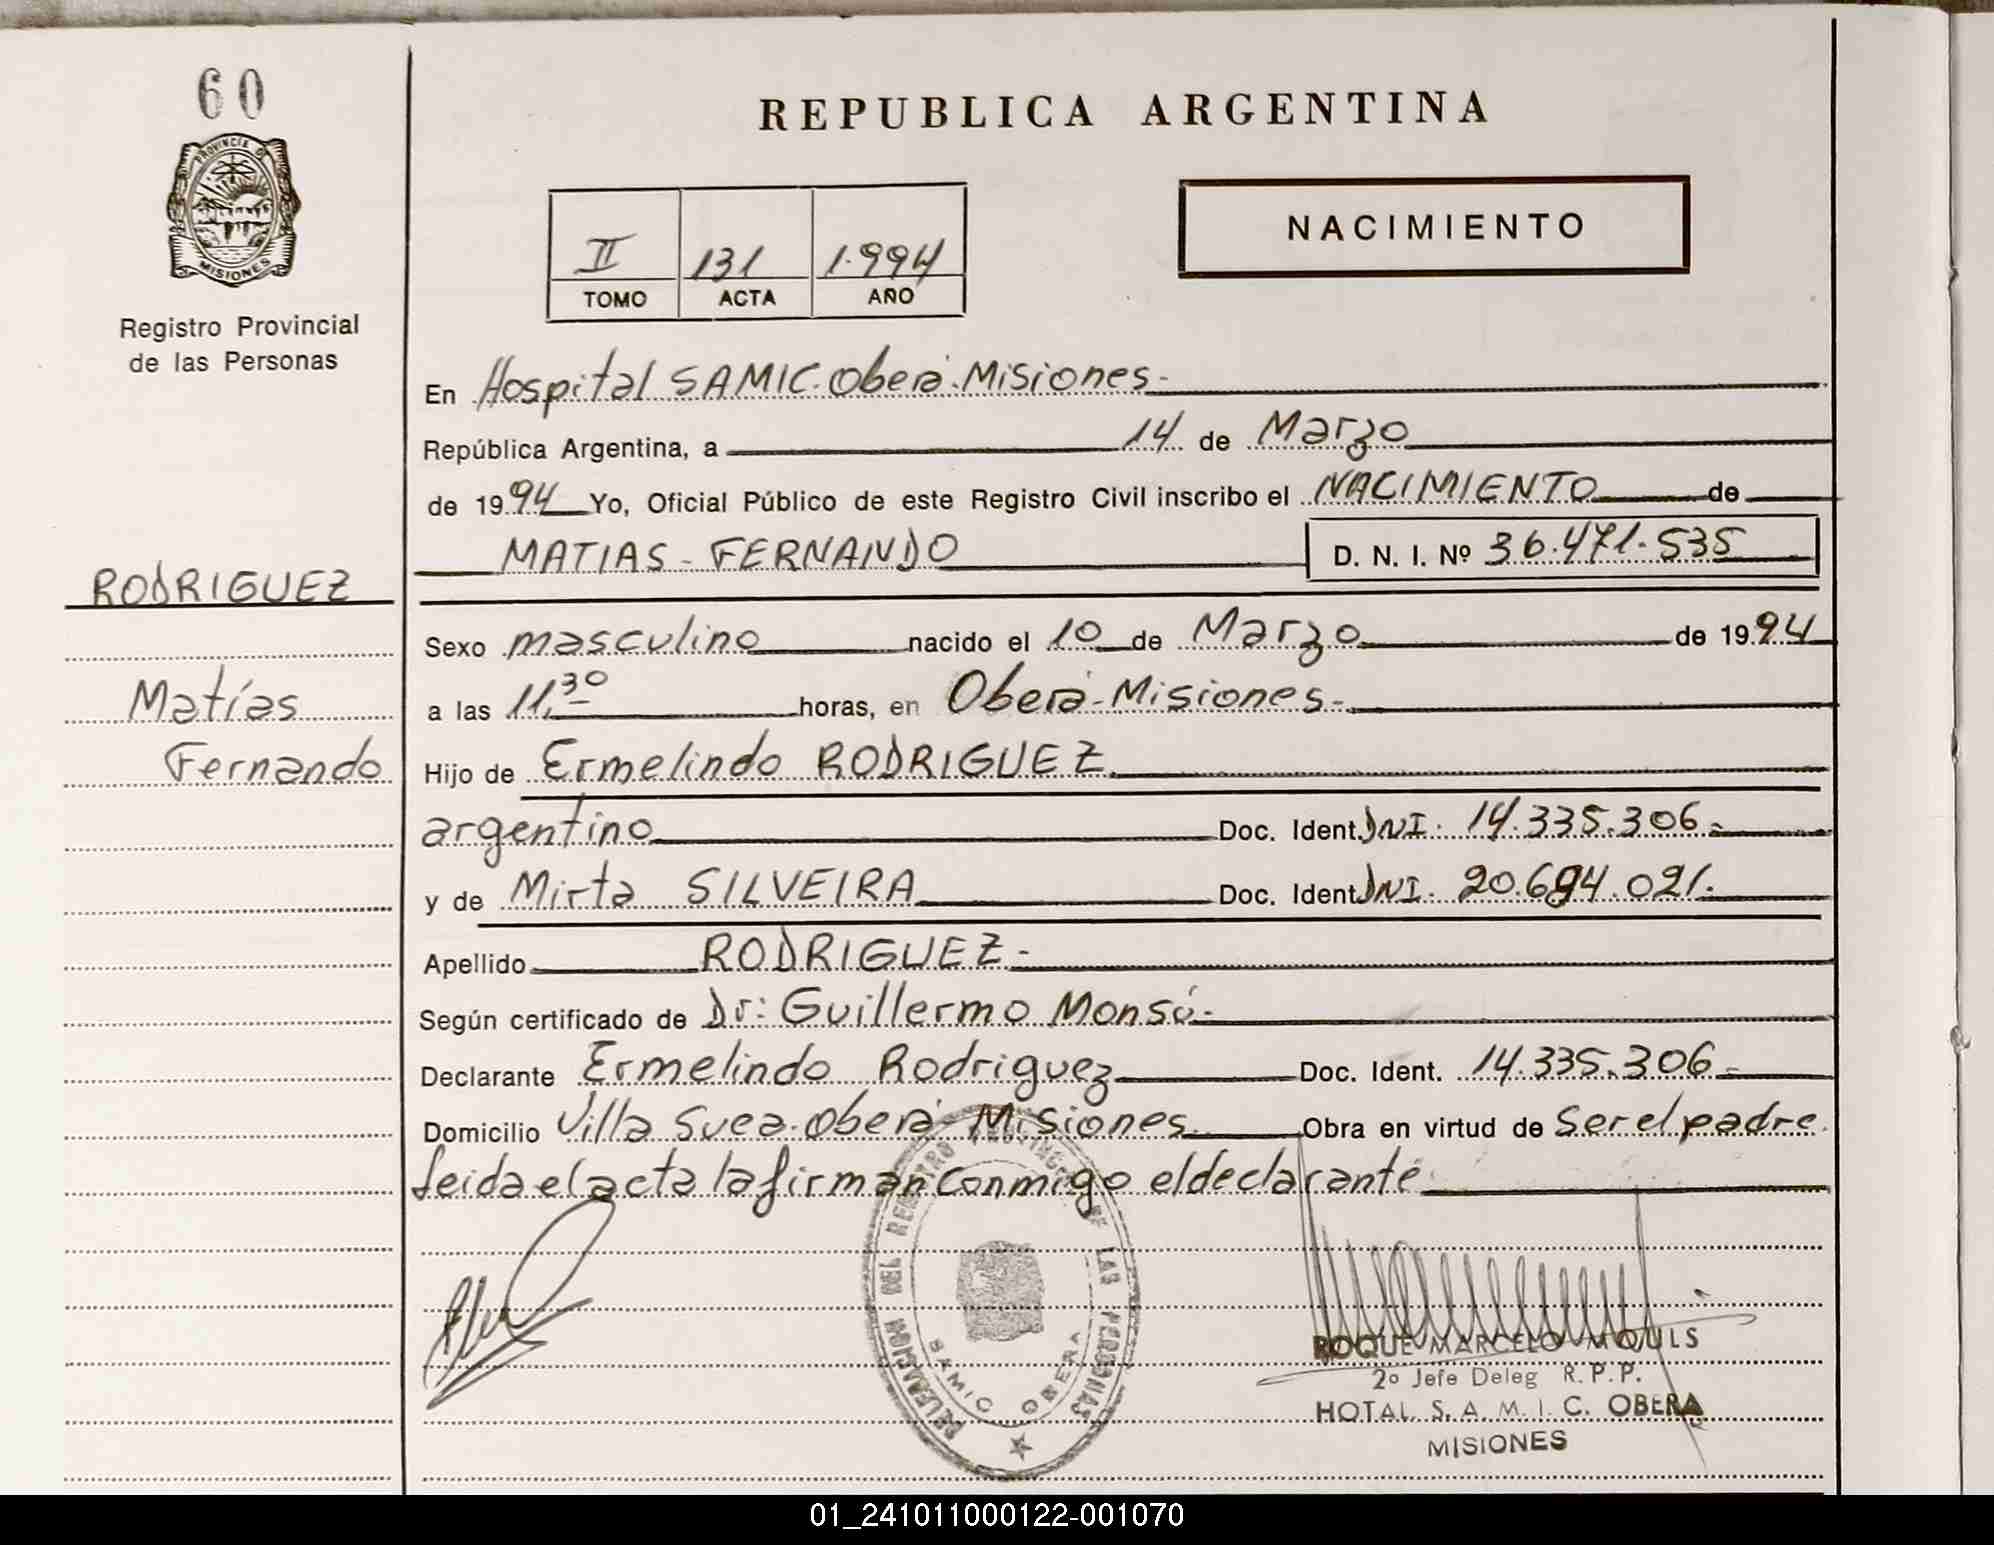 60
PROVINCIA D
MISIONES
Registro Provincial
de las Personas
REPUBLICA ARGENTINA
II 131 1.994
TOMO ACTA AÑO
NACIMIENTO
En Hospital SAMIC. Oberá. Misiones-
República Argentina, a 14 de Marzo
de 1994 Yo, Oficial Público de este Registro Civil inscribo el NACIMIENTO de
MATIAS - FERNANDO D. N. I. Nº 36.471.535
RODRIGUEZ
Sexo masculino nacido el 10 de Marzo de 1994
Matías
a las 11,30 horas, en Oberá-Misiones-
Fernando
Hijo de Ermelindo RODRIGUEZ
argentino Doc. Ident. DNI. 14.335.306-
y de Mirta SILVEIRA Doc. Ident. DNI. 20.694.021.
Apellido RODRIGUEZ-
Según certificado de Dr: Guillermo Monsó-
Declarante Ermelindo Rodriguez Doc. Ident. 14.335.306-
Domicilio Villa Svea. Oberá Misiones Obra en virtud de Ser el padre.
Leida el acta la firman conmigo el declarante
DELEGACION DEL REGISTRO PROVINC DE LAS PERSONAS
SAMIC OBERA
ROQUE MARCELO MOULS
2º Jefe Deleg R.P.P.
HOTAL. S. A. M. I. C. OBERA
MISIONES
01_241011000122-001070